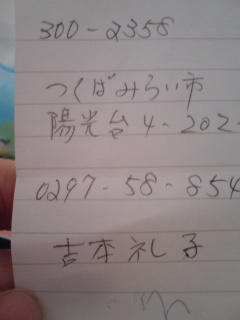 300-2358
つくばみらい市
陽光台4-202-
0297-58-854
吉本礼子